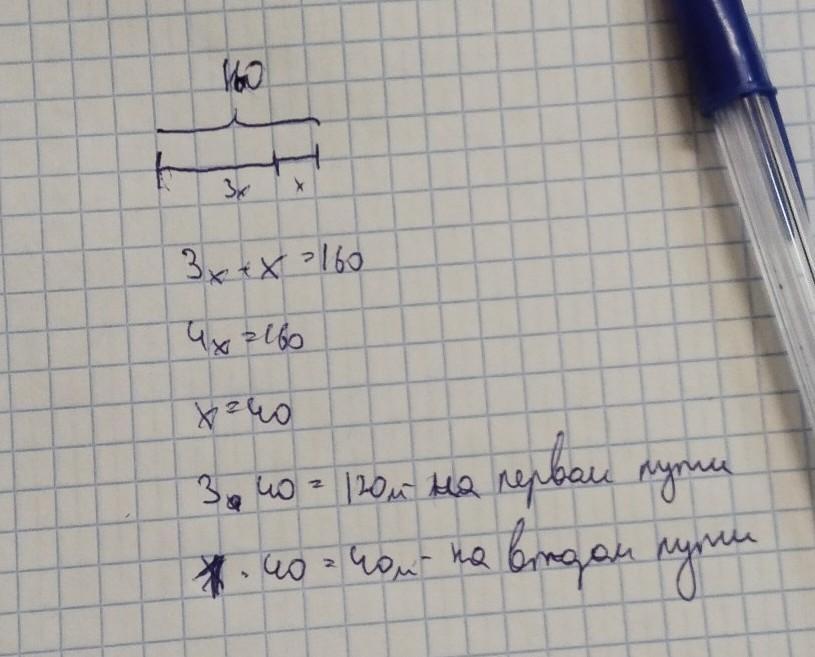 160
3x x
3x + x = 160
4x = 160
x = 40
3 . 40 = 120м - на первом пути
1 . 40 = 40м - на втором пути